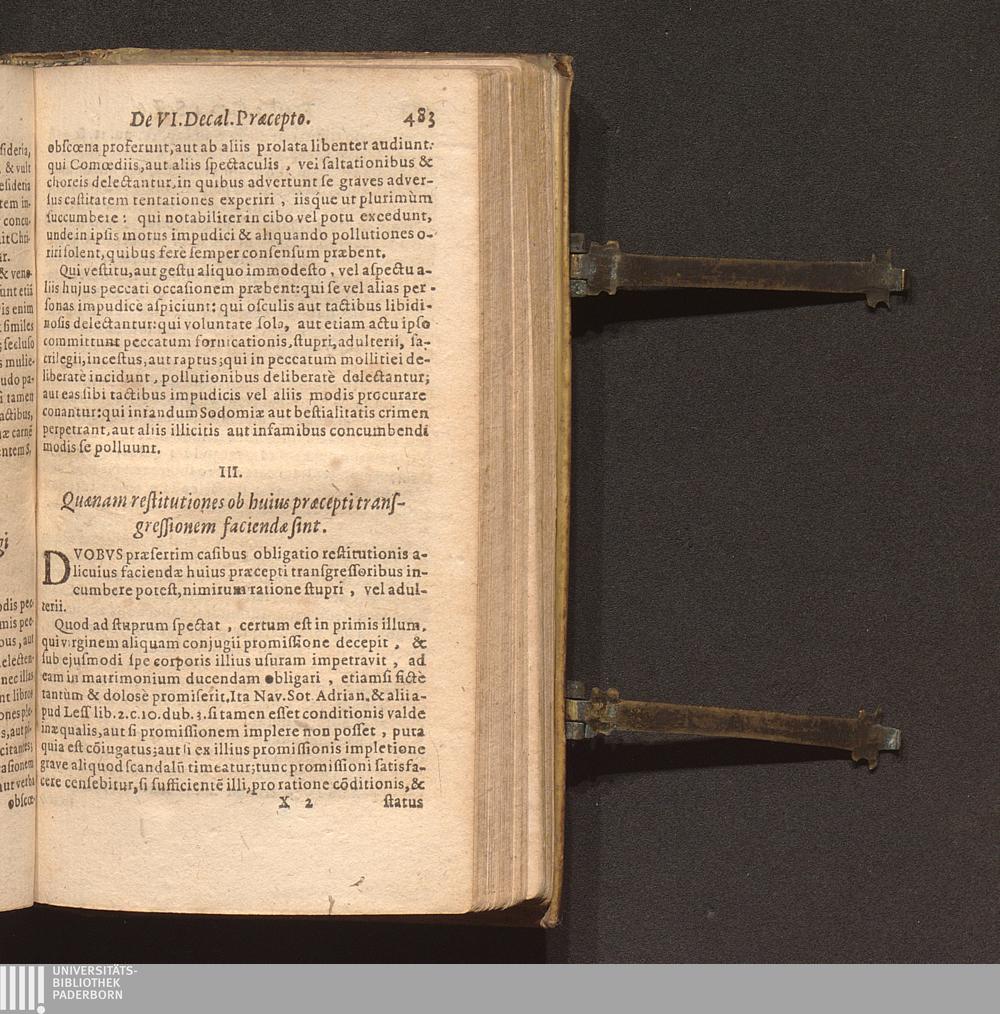 De VI. Decal. Præcepto. 483
obſcœna proferunt, aut ab aliis prolata libenter audiunt:
qui Comœdiis, aut aliis ſpectaculis, vel ſaltationibus &
choreis delectantur, in quibus advertunt ſe graves adver-
ſus caſtitatem tentationes experiri, iisque ut plurimùm
ſuccumbere: qui notabiliter in cibo vel potu excedunt,
unde in ipſis motus impudici & aliquando pollutiones o-
riri ſolent, quibus ferè ſemper conſenſum præbent.
Qui veſtitu, aut geſtu aliquo immodeſto, vel aſpectu a-
liis hujus peccati occaſionem præbent: qui ſe vel alias per-
ſonas impudicè aſpiciunt: qui oſculis aut tactibus libidi-
noſis delectantur: qui voluntate ſola, aut etiam actu ipſo
committunt peccatum fornicationis, ſtupri, adulterii, ſa-
crilegii, inceſtus, aut raptus; qui in peccatum mollitiei de-
liberatè incidunt, pollutionibus deliberatè delectantur;
aut eas ſibi tactibus impudicis vel aliis modis procurare
conantur: qui infandum Sodomiæ aut beſtialitatis crimen
perpetrant, aut aliis illicitis aut infamibus concumbendi
modis ſe polluunt.
III.
Quænam reſtitutiones ob huius præcepti tranſ-
greſſionem faciendæ ſint.
DVOBVS præſertim caſibus obligatio reſtitutionis a-
licuius faciendæ huius præcepti tranſgreſſoribus in-
cumbere poteſt, nimirum ratione ſtupri, vel adul-
terii.
Quod ad ſtuprum ſpectat, certum eſt in primis illum,
qui virginem aliquam conjugii promiſſione decepit, &
ſub ejuſmodi ſpe corporis illius uſuram impetravit, ad
eam in matrimonium ducendam obligari, etiamſi fictè
tantùm & dolosè promiſerit. Ita Nav. Sot. Adrian. & alii a-
pud Leſſ lib. 2. c. 10. dub. 3. ſi tamen eſſet conditionis valde
inæqualis, aut ſi promiſſionem implere non poſſet, puta
quia eſt cōiugatus; aut ſi ex illius promiſſionis impletione
grave aliquod ſcandalū timeatur; tunc promiſſioni ſatisfa-
cere cenſebitur, ſi ſufficientē illi, pro ratione cōditionis, &
X 2 ſtatus
UNIVERSITÄTS-
BIBLIOTHEK
PADERBORN